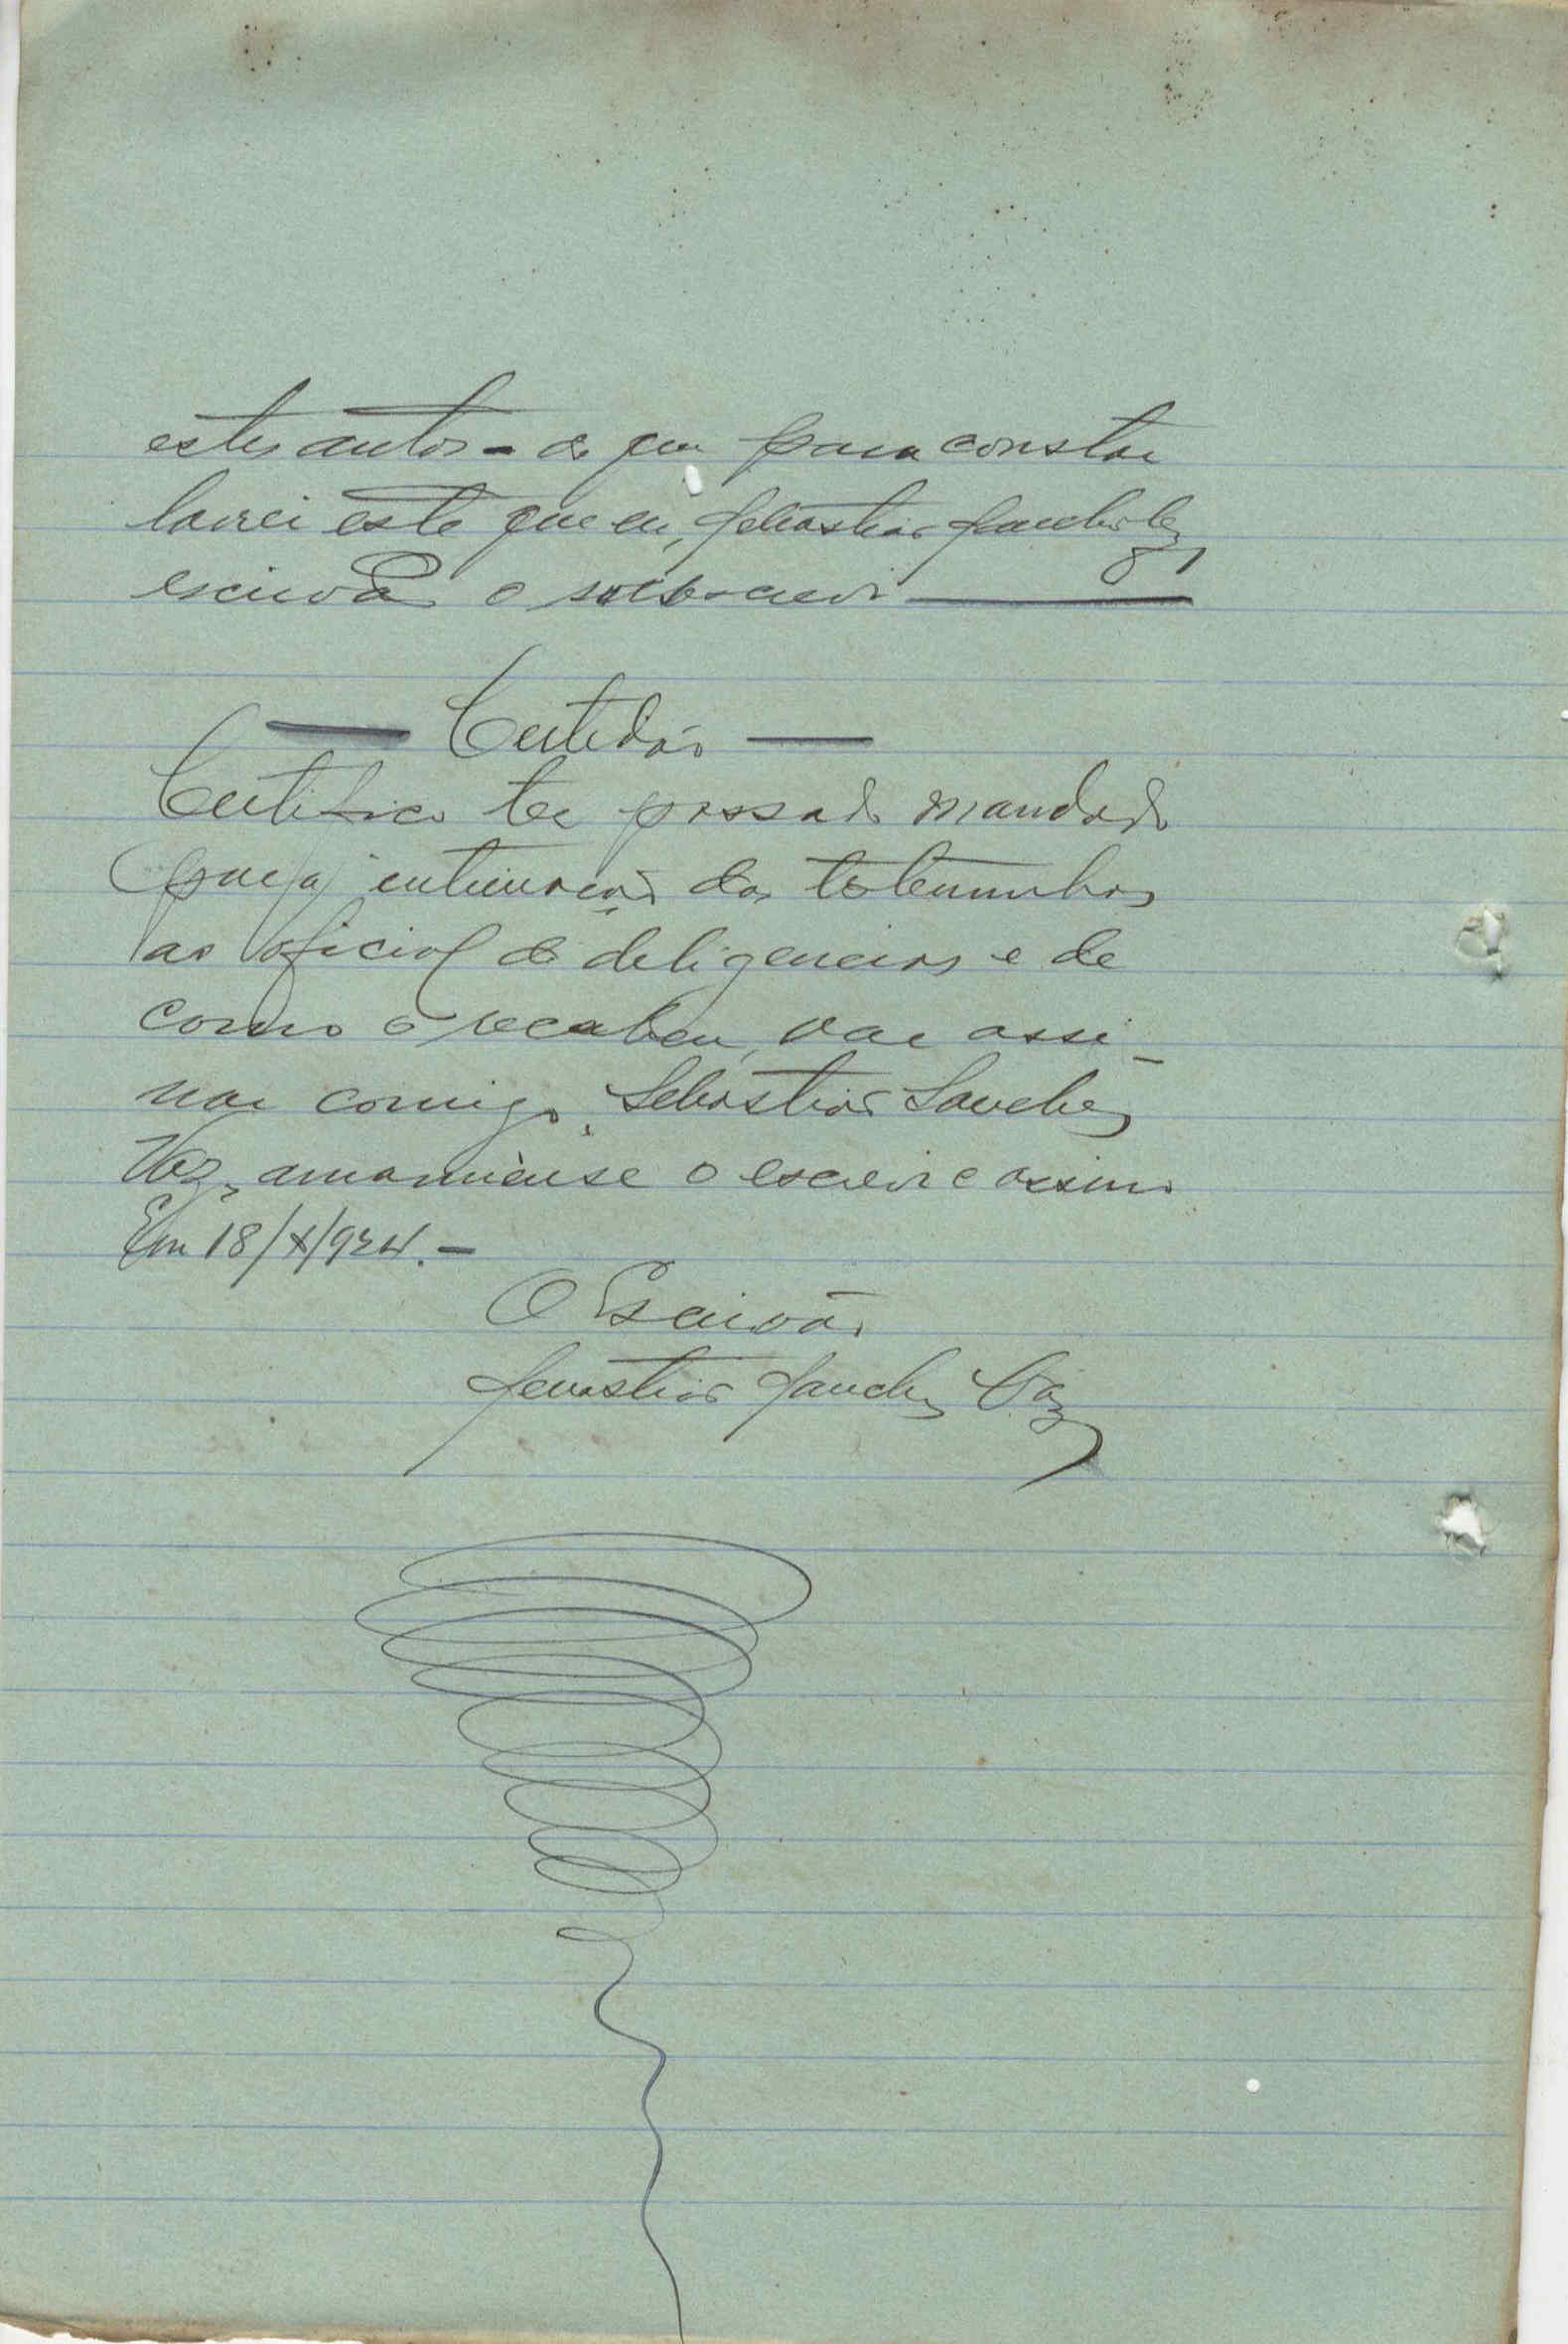 estes autos - do que para constar
lavrei este que eu, Sebastião Sanches
escrivão o subscrevi
— Certidão —
Certifico ter passado mandado
para intimação das testemunhas
ao oficial de deligencias e de
como o recebeu, vae assi-
nar comigo, Sebastião Sanches
Vaz, amanuense o escrevi e assino
Em 18/X/934. -
O Escrivão
Sebastião Sanches Vaz